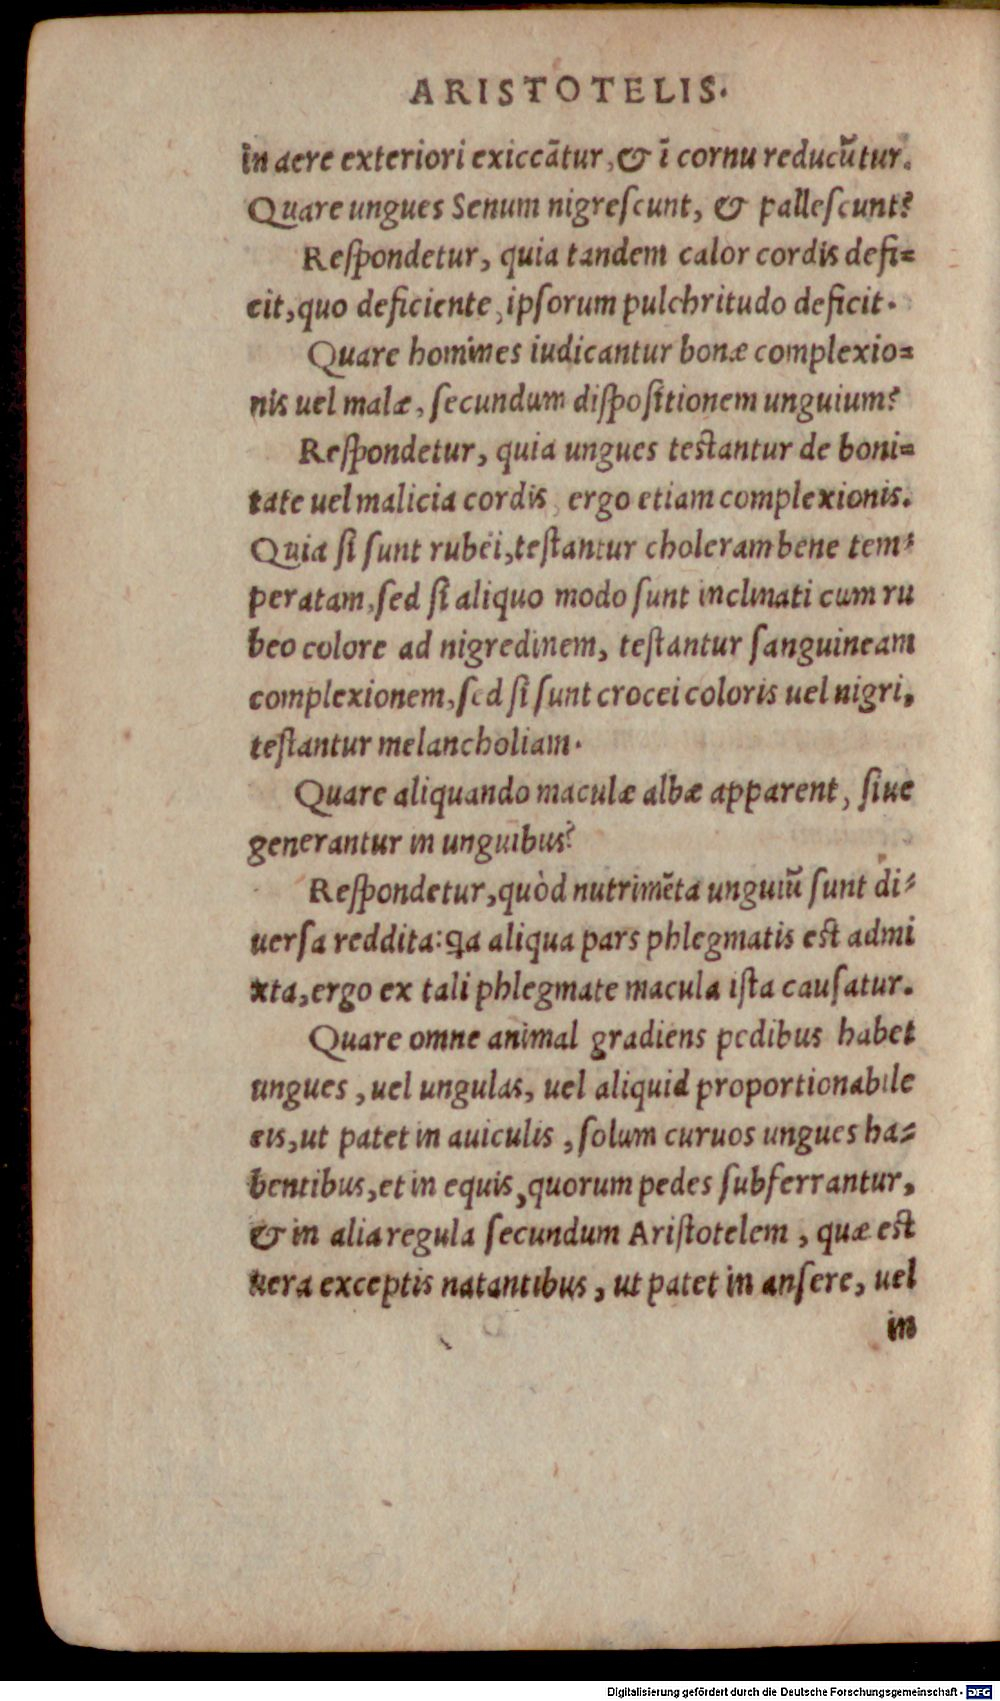 ARISTOTELIS.
in aere exteriori exiccãtur, & ĩ cornu reducũtur.
Quare ungues Senum nigreſcunt, & palleſcunt?
Reſpondetur, quia tandem calor cordis defi=
cit, quo deficiente, ipſorum pulchritudo deficit.
Quare homines iudicantur bonæ complexio=
nis uel malæ, ſecundum diſpoſitionem unguium?
Reſpondetur, quia ungues teſtantur de boni=
tate uel malicia cordis, ergo etiam complexionis.
Quia ſi ſunt rubei, teſtantur choleram bene tem=
peratam, ſed ſi aliquo modo ſunt inclinati cum ru
beo colore ad nigredinem, teſtantur ſanguineam
complexionem, ſed ſi ſunt crocei coloris uel nigri,
teſtantur melancholiam.
Quare aliquando maculæ albæ apparent, ſiue
generantur in unguibus?
Reſpondetur, quòd nutrimẽta unguiũ ſunt di=
uerſa reddita: ꝗa aliqua pars phlegmatis eſt admi
xta, ergo ex tali phlegmate macula iſta cauſatur.
Quare omne animal gradiens pedibus habet
ungues, uel ungulas, uel aliquid proportionabile
eis, ut patet in auiculis, ſolum curuos ungues ha=
bentibus, et in equis, quorum pedes ſubferrantur,
& in alia regula ſecundum Ariſtotelem, quæ eſt
uera exceptis natantibus, ut patet in anſere, uel
in
Digitalisierung gefördert durch die Deutsche Forschungsgemeinschaft - DFG